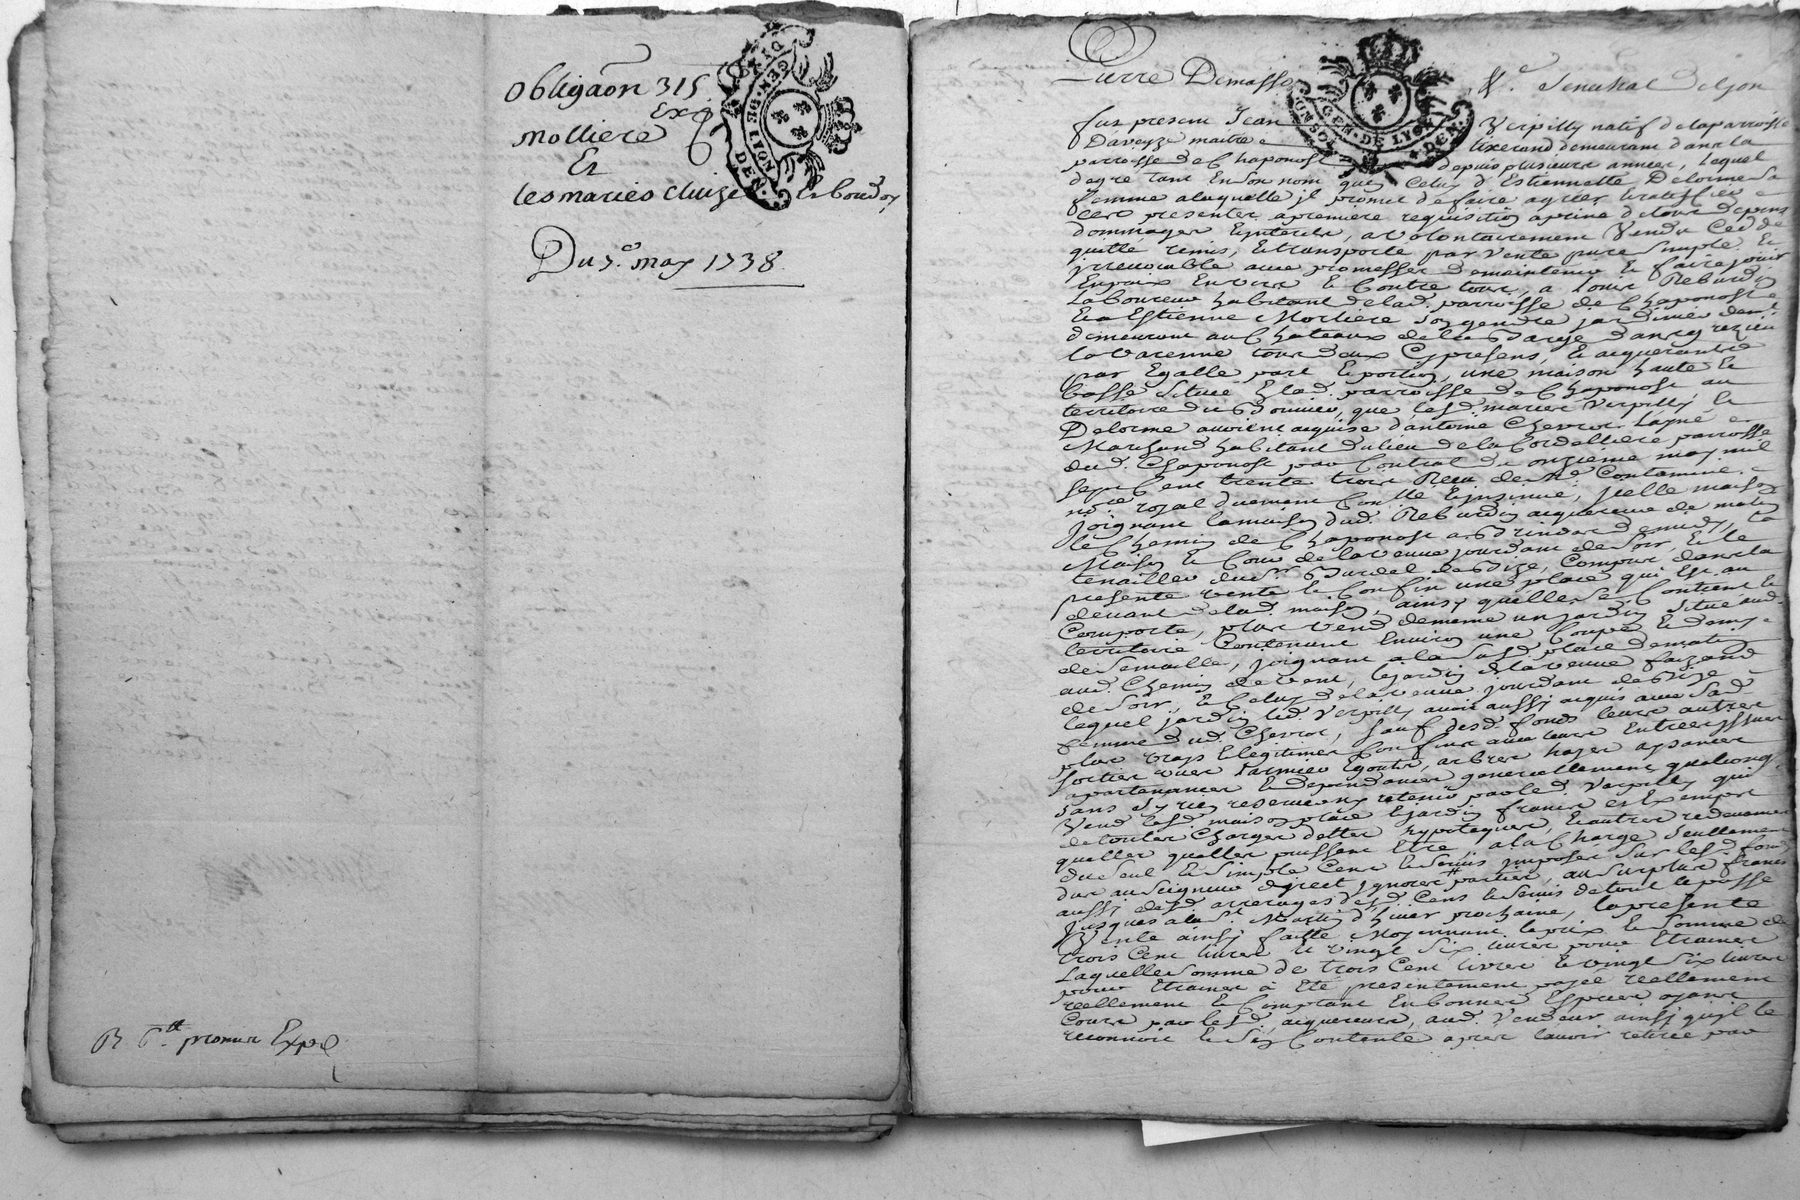 Obligaon 315
Exp
Molliere
Et
les mariés Cluize et boudoy
Du 7e. may 1738
6tt premier Expe
Pierre Demasso Senechal de Lyon
GEN. DE LYON
DEN.
fut present Jean Verpilly natif de la parroisse
Daveyze maitre tixerand demeurant dans la
parroisse de Chaponost depuis plusieurs années, lequel
de gré tant en son nom que Celuy d'Estiennette Delorme Sa
femme a laquelle il promet de faire agréer et ratiffier
Ces presentes a premiere requisition a peine de tous depens
dommages Interets, a volontairement Vendu Cedde
quitté remis, et transporté par vente pure simple et
irrevocable avec promesses de maintenir et faire jouir
En paix Envers et Contre tous, a Louis Rebardy
Laboureur habitant de lad. parroisse de Chaponost
Et a Estienne Morliere son gendre jardinier
demeurant au Chateau de la Barge dans grezieu
la Varenne tous deux Cy presens, et acquerants
par Egalle part et portion, une maison haute et
basse Située En lad. parroisse de Chaponost au
territoire du Bonnieu, que lesd. mariés Verpilly et
Delorme avoient acquise d'antoine Chevrot Layné
Marchand habitant du lieu de la Cordelliere parroisse
dud. Chaponost par Contrat du onzieme may mil
Sept Cent trente trois Receu de Me. Contamine
nore royal duement Conllé Insinué, jcelle maison
Joignant la maison dud. Rebardy acquereur de matin
le Chemin de Chaponost a Brindas de midy, la
Maison et Cour de la veuve jourdant de Soir, Et le
tenaillier du Sr. Burdel de Bize, Compris dans la
presente vente et Confin une place qui Est au
devant de lad. maison, ainsy qu'elle Se Contient et
Comporte, plus vend de meme un jardin Situé aud.
territoire Contenant Environ une Coupée et demy
de Semaille, joignant a la Susd. place de matin
aud. Chemin de vent, le jardin de la veuve
de Soir, et Celuy de la veuve jourdant de Bize
lequel jardin led. Verpilly avoit aussy acquis avec Sad.
femme dud. Chevrot, Sauf desd. fonds leurs autres
plus vrays Et legitimes Confins avec leurs Entrées yssues
Sorties vües Larmiers Egouts, arbres hayes aysances
apartenances et dependances generallement quelconq.
Sans d'y rien reserver ny retenir par led. Verpilly qui
Vend lesd. maison place et jardin francs et Exempts
de toutes Charges dettes hypoteques, et autres redevances
quelles qu'elles puissent Etre, a la Charge Seullement
du Seul et Simple Cens et Servis imposés Sur lesd. fonds
dus au Seigneur direct ignorés partie, au Surplus francs
aussi desd. arrerages desd. Cens et Servis de tout le passé
jusques a la St. Martin d'hiver prochaine, la presente
Vente ainsy faitte Moyennant le prix et Somme de
trois Cent livres et vingt Six livres pour Etrainer
Laquelle Somme de trois Cent livres et vingt Six livres
pour Etrainer à Eté presentement payée reellement
reellement et Comptant En bonnes Especes ayant
Cours par lesd. acquereurs, aud. Vendeur ainsy qu'il le
reconnoit et S'en Contente apres l'avoir retirée par